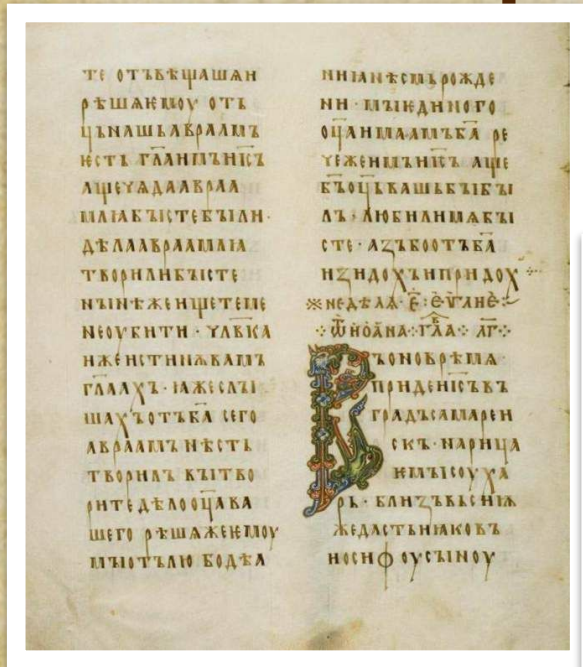 те отъвѣщашѧи
рѣшѧѥмоу оть
ць нашь авраамъ
ѥсть гл҃а имъ иі҃съ
аще чѧда авраа
млꙗ бысте были ·
дѣла авраамлꙗ
творили бысте
нынѣ же ищете мє
не оубити · чл҃вка
иже истинѫ вамъ
гл҃аахъ · ꙗже слы
шахъ отъ б҃а сего
авраамъ нѣсть
творилъ вы тво
рите дѣло оц҃а ва
шего рѣшѧ же ѥмоу
мы отъ лю бодѣа
ниꙗ нѣсмь рожде
ни · мы ѥдиного
оц҃а имаамъ б҃а ре
че же имъ иі҃съ аще
бъ оц҃ь вашь бы бы
лъ · любили мѧ бы
сте · азъ бо отъ б҃а
изидохъ и придох
※ недѣлѧ · е҃ · еѵ҃ліѥ ·
ѿ иоана · гла · лг ·
Въ оно врѣмѧ ·
приде иі҃съ въ
градъ самареи
скъ · нарица
ѥмыи соуха
рь · близъ вьси ѭ
же дасть иꙗковъ
иосифоу сыноу